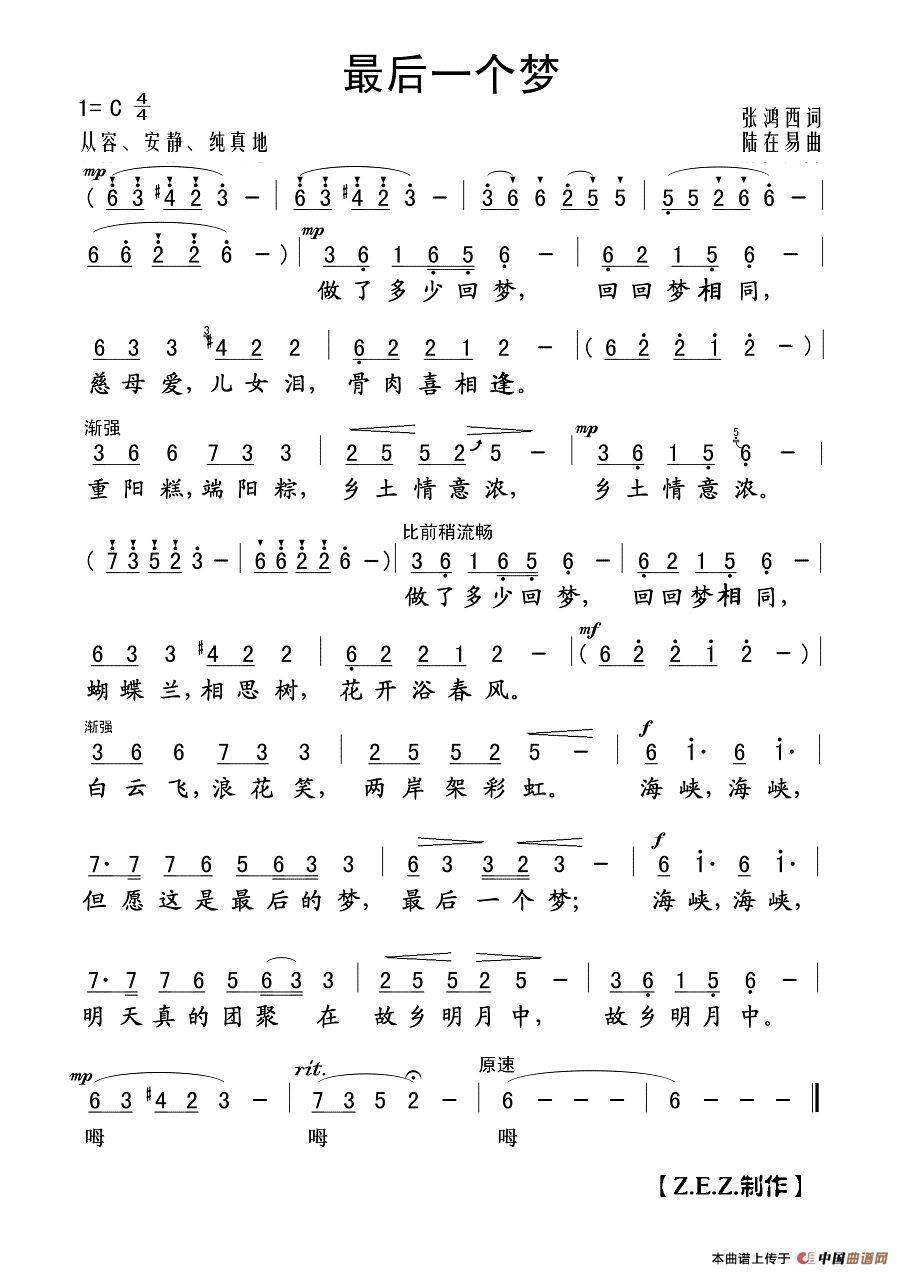 最后一个梦
1= C 4/4
张鸿西词
从容、安静、纯真地
陆在易曲
mp
( 6 3 #4 2 3 - | 6 3 #4 2 3 - | 3 6 6 2 5 5 | 5 5 2 6 6 - |
mp
6 6 2 2 6 - ) | 3 6 1 6 5 6 - | 6 2 1 5 6 - |
做了多少回梦， 回回梦相同，
6 3 3 #4 2 2 | 6 2 2 1 2 - | ( 6 2 2 1 2 - ) |
慈母爱，儿女泪， 骨肉喜相逢。
渐强 mp
3 6 6 7 3 3 | 2 5 5 2 5 - | 3 6 1 5 6 - |
重阳糕，端阳粽， 乡土情意浓， 乡土情意浓。
比前稍流畅
( 7 3 5 2 3 - | 6 6 2 2 6 - ) | 3 6 1 6 5 6 - | 6 2 1 5 6 - |
做了多少回梦， 回回梦相同，
mf
6 3 3 #4 2 2 | 6 2 2 1 2 - | ( 6 2 2 1 2 - ) |
蝴蝶兰，相思树， 花开浴春风。
渐强 f
3 6 6 7 3 3 | 2 5 5 2 5 - | 6 1· 6 1· |
白云飞，浪花笑， 两岸架彩虹。 海峡，海峡，
f
7· 7 7 6 5 6 3 3 | 6 3 3 2 3 - | 6 1· 6 1· |
但愿这是最后的梦， 最后一个梦； 海峡，海峡，
7· 7 7 6 5 6 3 | 2 5 5 2 5 - | 3 6 1 5 6 - |
明天真的团聚 在 故乡明月中， 故乡明月中。
mp rit. 原速
6 3 #4 2 3 - | 7 3 5 2 - | 6 - - - | 6 - - - ‖
呣 呣 呣
【Z.E.Z.制作】
本曲谱上传于 中国曲谱网